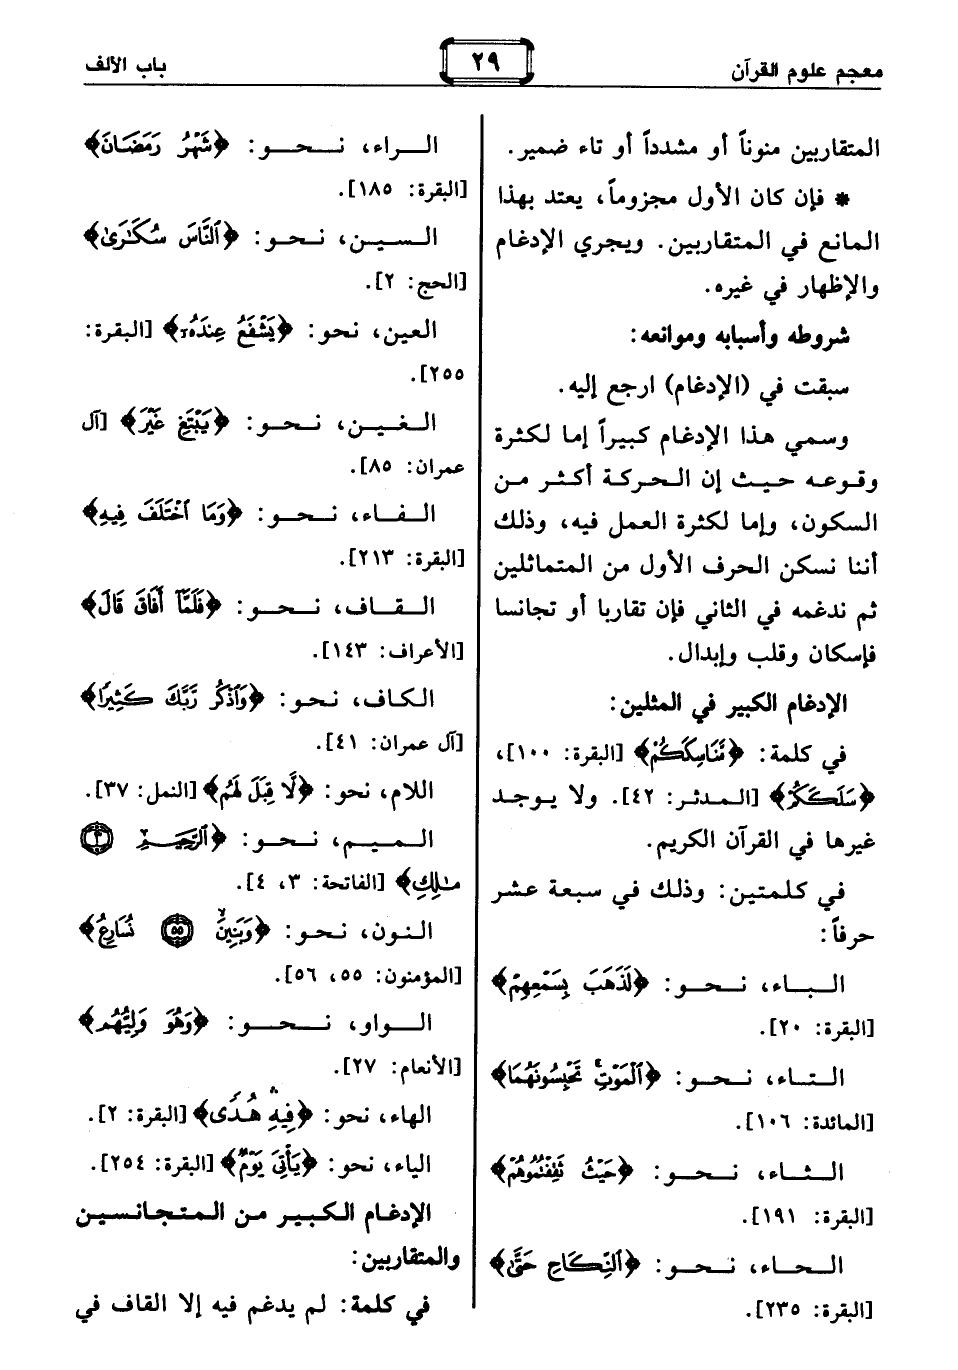 معجم علوم القرآن
٢٩
باب الألف
المتقاربين منوناً أو مشدداً أو تاء ضمير.
* فإن كان الأول مجزوماً، يعتد بهذا
المانع في المتقاربين. ويجري الإدغام
والإظهار في غيره.
شروطه وأسبابه وموانعه:
سبقت في (الإدغام) ارجع إليه.
وسمي هذا الإدغام كبيراً إما لكثرة
وقوعه حيث إن الحركة أكثر من
السكون، وإما لكثرة العمل فيه، وذلك
أننا نسكن الحرف الأول من المتماثلين
ثم ندغمه في الثاني فإن تقاربا أو تجانسا
فإسكان وقلب وإبدال.
الإدغام الكبير في المثلين:
في كلمة: ﴿مَّنَاسِكَكُمْ﴾ [البقرة: ١٠٠]،
﴿سَلَكَكُمْ﴾ [المدثر: ٤٢]. ولا يوجد
غيرها في القرآن الكريم.
في كلمتين: وذلك في سبعة عشر
حرفاً:
الباء، نحو: ﴿لَذَهَبَ بِسَمْعِهِمْ﴾
[البقرة: ٢٠].
التاء، نحو: ﴿ٱلْمَوْتِۚ تَحْبِسُونَهُمَا﴾
[المائدة: ١٠٦].
الثاء، نحو: ﴿حَيْثُ ثَقِفْتُمُوهُمْ﴾
[البقرة: ١٩١].
الحاء، نحو: ﴿ٱلنِّكَاحِ حَتَّىٰ﴾
[البقرة: ٢٣٥].
الراء، نحو: ﴿شَهْرُ رَمَضَانَ﴾
[البقرة: ١٨٥].
السين، نحو: ﴿ٱلنَّاسَ سُكَـٰرَىٰ﴾
[الحج: ٢].
العين، نحو: ﴿يَشْفَعُ عِندَهُۥ﴾ [البقرة:
٢٥٥].
الغين، نحو: ﴿يَبْتَغِ غَيْرَ﴾ [آل
عمران: ٨٥].
الفاء، نحو: ﴿وَمَا ٱخْتَلَفَ فِيهِ﴾
[البقرة: ٢١٣].
القاف، نحو: ﴿فَلَمَّآ أَفَاقَ قَالَ﴾
[الأعراف: ١٤٣].
الكاف، نحو: ﴿وَٱذْكُر رَّبَّكَ كَثِيرًا﴾
[آل عمران: ٤١].
اللام، نحو: ﴿لَّا قِبَلَ لَهُم﴾ [النمل: ٣٧].
الميم، نحو: ﴿ٱلرَّحِيمِ ٣
مَـٰلِكِ﴾ [الفاتحة: ٣، ٤].
النون، نحو: ﴿وَبَنِينَۙ ٥٥ نُسَارِعُ﴾
[المؤمنون: ٥٥، ٥٦].
الواو، نحو: ﴿وَهُوَ وَلِيُّهُم﴾
[الأنعام: ٢٧].
الهاء، نحو: ﴿فِيهِۛ هُدًى﴾ [البقرة: ٢].
الياء، نحو: ﴿يَأْتِيَ يَوْمٌ﴾ [البقرة: ٢٥٤].
الإدغام الكبير من المتجانسين
والمتقاربين:
في كلمة: لم يدغم فيه إلا القاف في